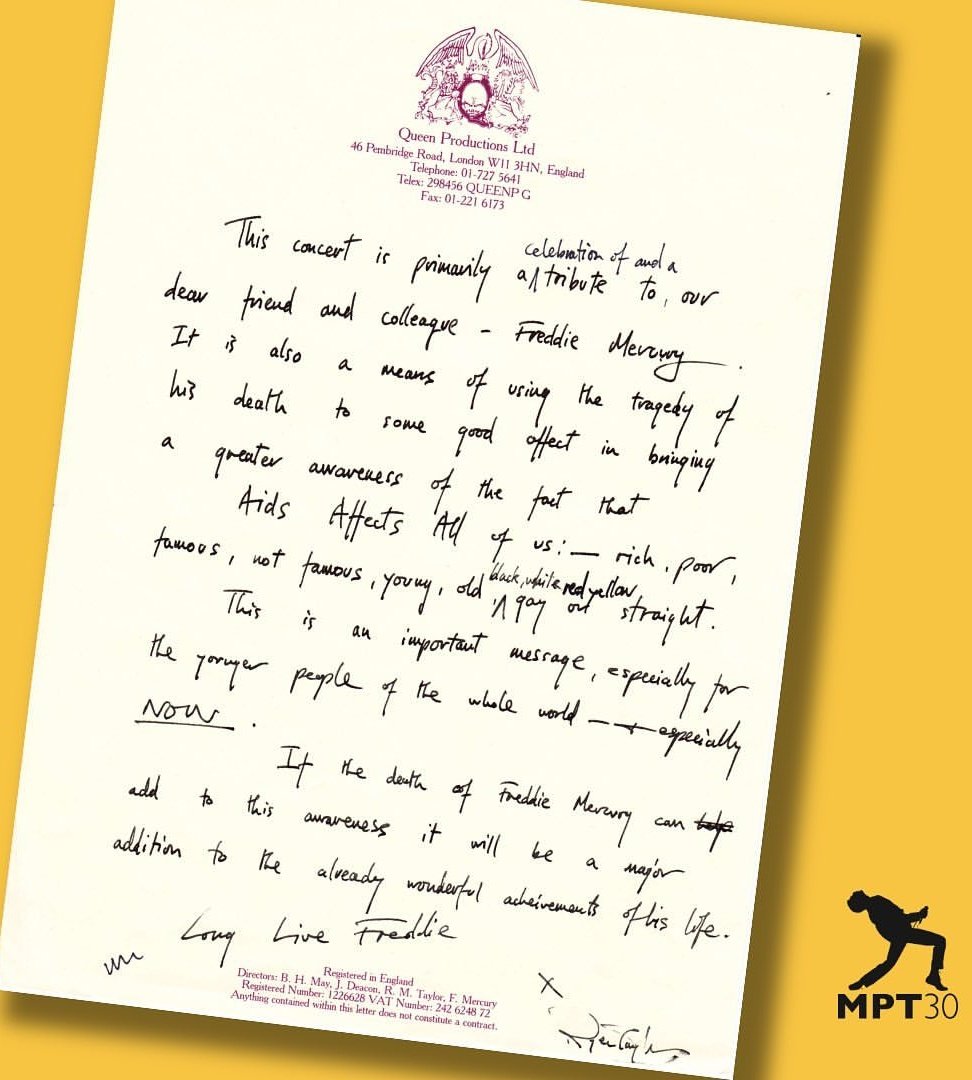 Queen Productions Ltd
46 Pembridge Road, London W11 3HN, England
Telephone: 01-727 5641
Telex: 298456 QUEENP G
Fax: 01-221 6173
This concert is primarily a celebration of and a tribute to, our
dear friend and colleague – Freddie Mercury.
It is also a means of using the tragedy of
his death to some good effect in bringing
a greater awareness of the fact that
Aids Affects All of us:— rich, poor,
famous, not famous, young, old black, white red yellow, gay or straight.
This is an important message, especially for
the younger people of the whole world — especially
NOW.
If the death of Freddie Mercury can
add to this awareness it will be a major
addition to the already wonderful acheivements of his life.
Long Live Freddie
Registered in England
Directors: B. H. May, J. Deacon, R. M. Taylor, F. Mercury
Registered Number: 1226628 VAT Number: 242 6248 72
Anything contained within this letter does not constitute a contract.
X
Roger Taylor
MPT30